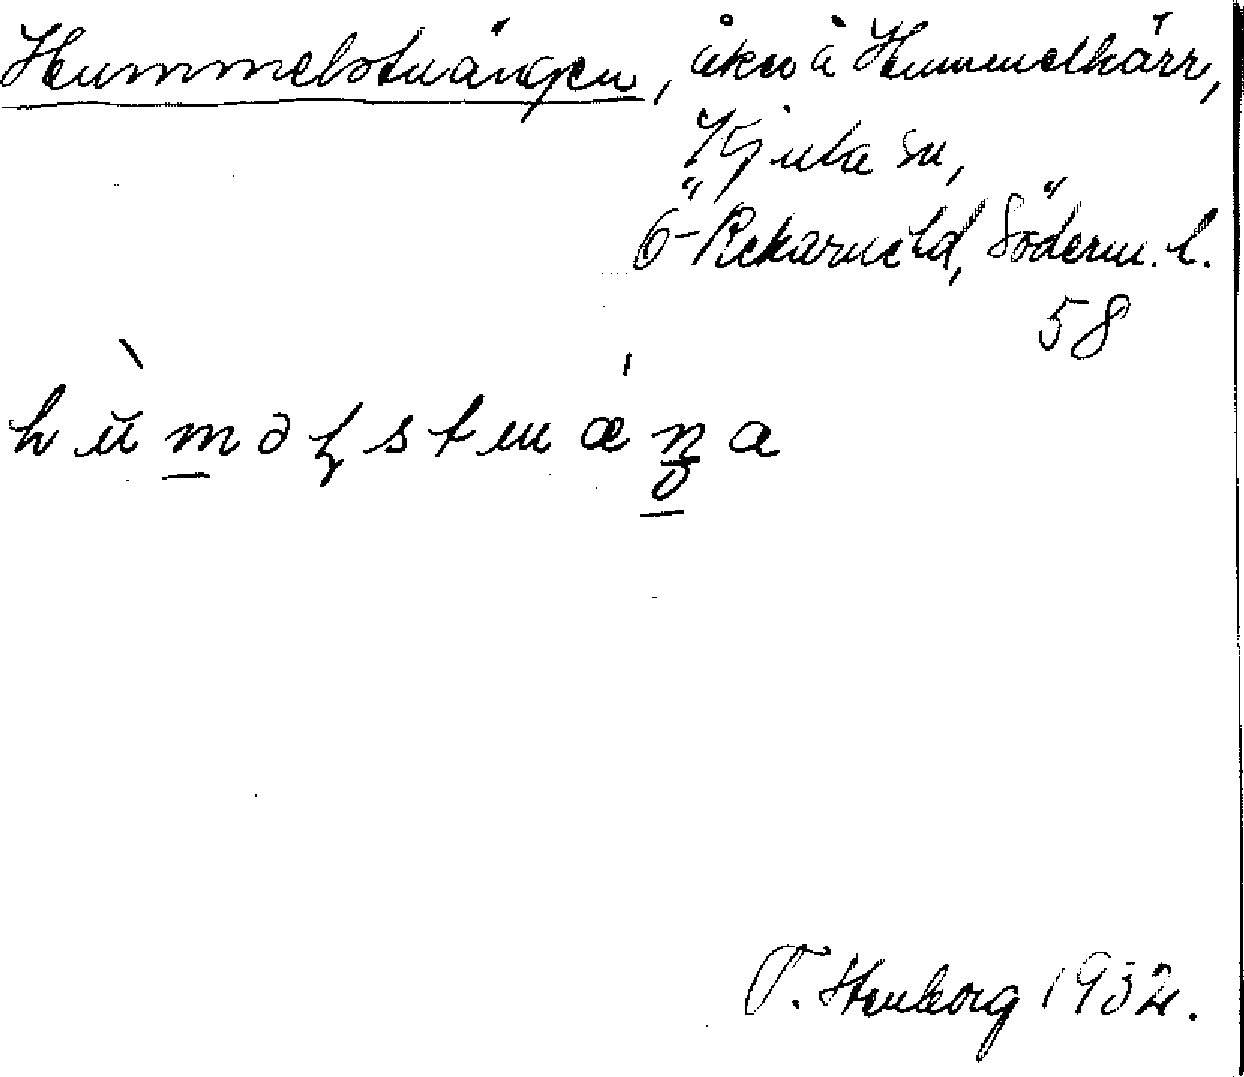 Hummelstuängen, åker å Hummelkärr,
Kjula sn,
Ö-Rekarne hd, Söderm. l.
58
hùməl̥stuáŋa
T. Stenborg 1932.